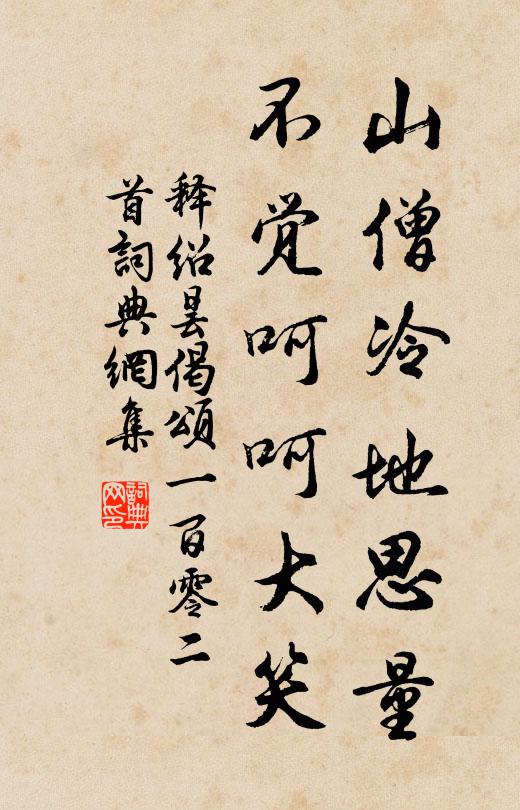 山僧冷地思量
不觉呵呵大笑
释绍昙偈颂一百零二
首詞典網集
詞典
网印